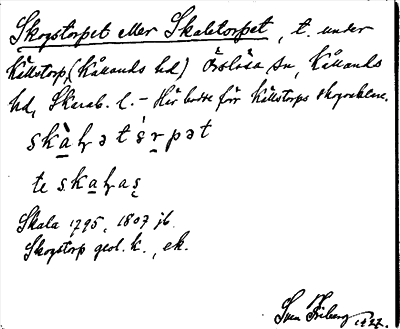 Skogstorpet eller Skaletorpet, t. under
Källstorp, (Kållands hd) Örslösa sn, Kållands
hd, Skarab. l. – Här bodde för Källstorps skogvaktare.
te
Skala 1795, 1807 jb.
Skogstorp geol. k., ek.
Sven Friberg 1927.